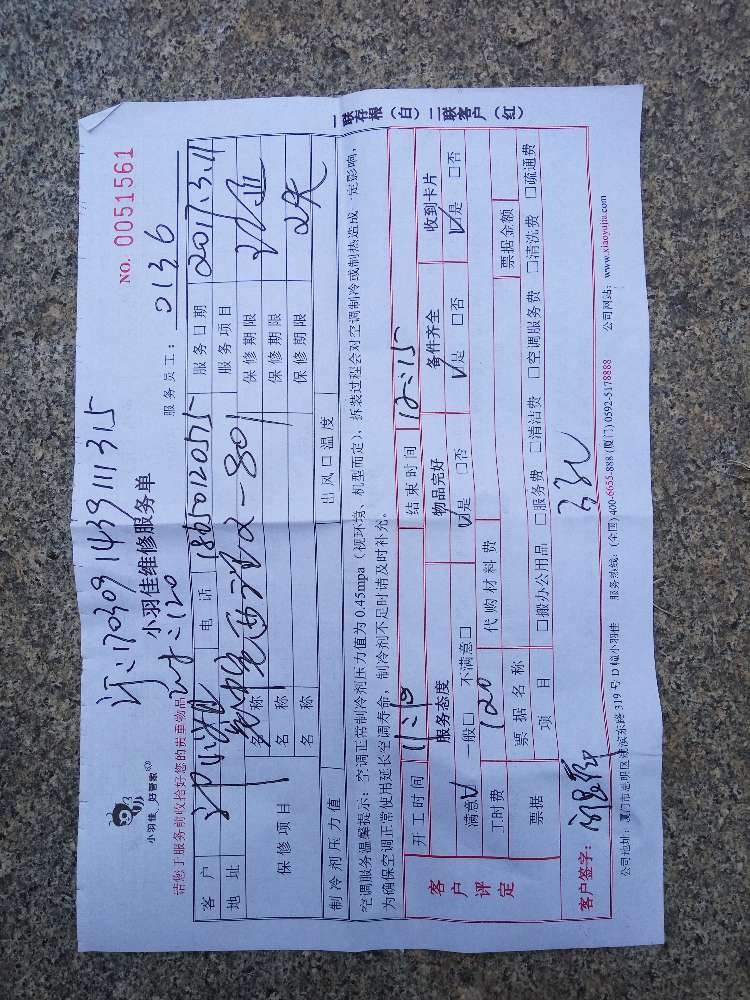 订:170309143911315
NO. 0051561
小羽佳 好管家
小羽佳维修服务单
时:120
请您于服务前收拾好您的贵重物品
服务员工: 0136
客户 电话 18650120575 服务日期 2017.3.11
地址 2-801 服务项目
保修项目 名称 保修期限
名称 保修期限
名称 保修期限
制冷剂压力值 出风口温度
空调服务温馨提示:空调正常制冷剂压力值为0.45mpa(视环境、机型而定),拆装过程会对空调制冷或制热造成一定影响,
为确保空调正常使用延长空调寿命,制冷剂不足时请及时补充。
客户评定
开工时间 11:10 结束时间 12:15
服务态度 物品完好 备件齐全 收到卡片
满意☑ 一般□ 不满意□ ☑是 □否 ☑是 □否 ☑是 □否
工时费 120 代购材料费
票据 票据名称 票据金额
项目 □搬办公用品 □服务费 □清洁费 □空调服务费 □清洗费 □疏通费
客户签字:
公司地址:厦门市思明区湖滨东路319号D幢小羽佳 服务热线:(全国)400-6655-888 (厦门)0592-5178888 公司网站:www.xiaoyujia.com
一联存根(白)二联客户(红)